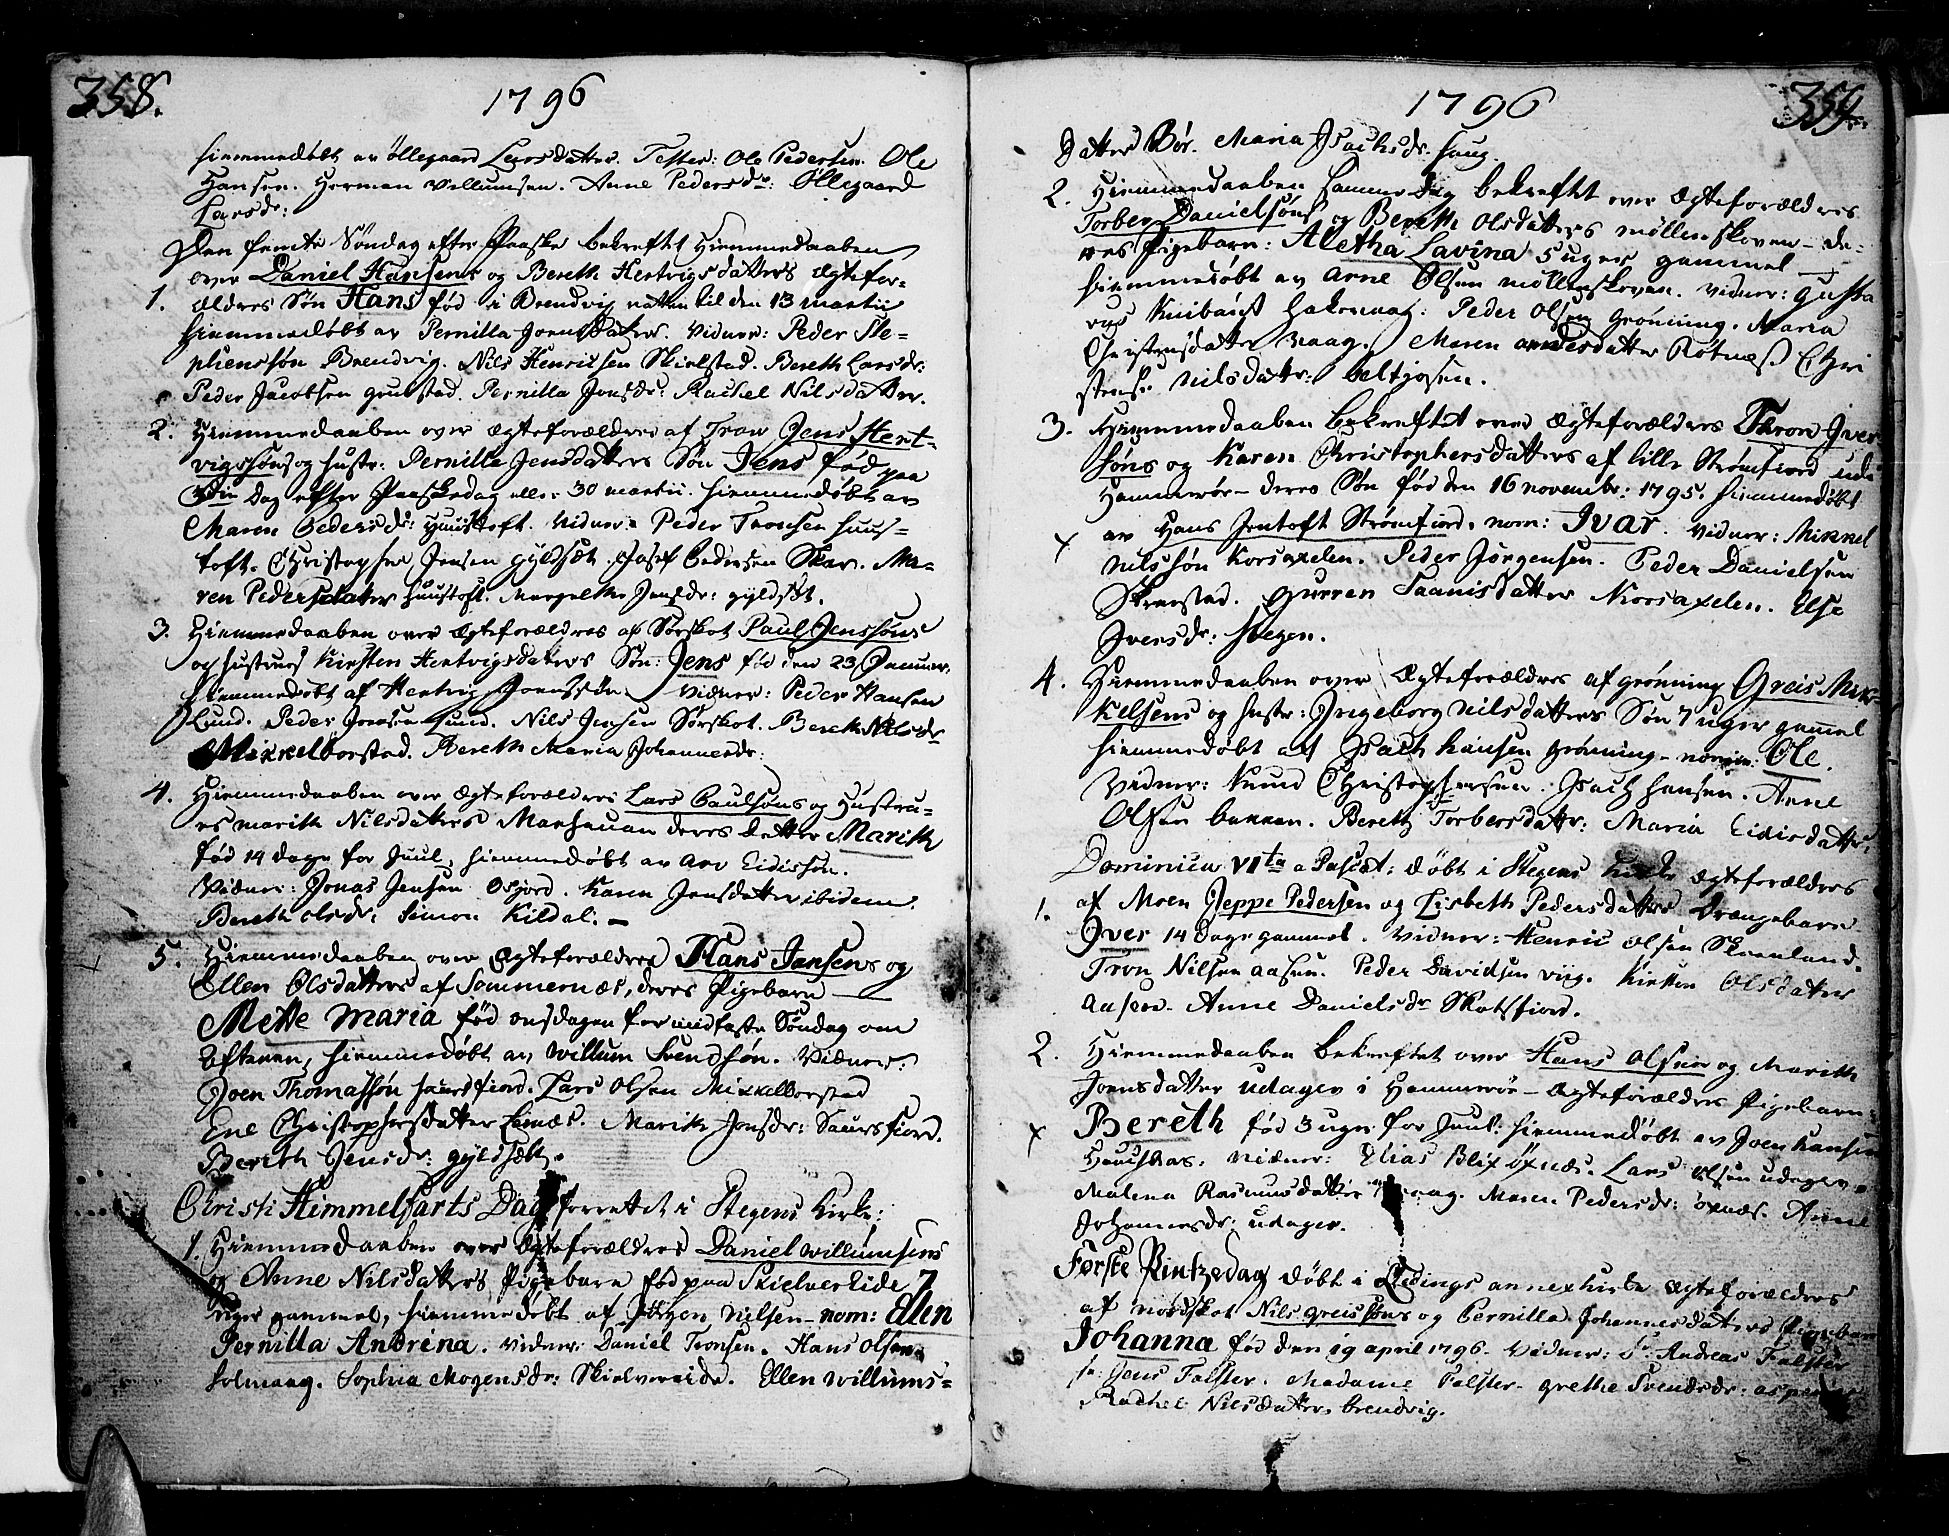 358.
1796
hiemmedøbt av Øllegaard Larsdatter. Tester: Ole Pedersen. Ole
Hansen. Herman Villumsen. Anne Pedersdr: Øllegaard
Larsdr:
Den femte Søndag efter Paaske bekreftet Hiemmedaaben
over Daniel Hansens og Bereth Hertvigsdatters Ægtefor-
1. ældres Søn Hans fød i Brendvig natten til den 13 martii
hiemmedøbt av Pernilla Joensdatter. Vidner: Peder Ste-
phensøn Brendvig. Nils Henrichsen Skielstad. Bereth Larsdr:
Peder Jacobsen Grustad. Pernilla Jonsdr: Rachel Nilsdatter.
2. Hiemmedaaben over Ægteforældres af Trow Jens Hert-
vigsøns og hustr: Pernilla Jensdatters Søn Jens fød paa
Dag efter Paaskedag eller 30 martii. hiemmedøbt av
Maren Pedersdr: Huustoft. Vidner: Peder Tronsen Huus-
toft. Christopher Jensen Gyldsæt. Josef Pedersen Skar. Ma-
ren Pedersdatter Huustoft. Margethe Jensdr: Gyldsæt.
3. Hiemmedaaben over Ægteforældres af Sørskot Paul Jenssøns
og hustrues Kirsten Hertvigsdatters Søn: Jens fød den 23 Januar.
hiemmedøbt af Hertvig Joenssøn. Vidner: Peder Hansen
Lund. Peder Joensen Lund. Nils Jensen Sørskot. Bereth Nilsdr
Mikkelborstad. Bereth Maria Johannesdr:
4. Hiemmedaaben over Ægteforældres Lars Paulsøns og Hustru-
es Marith Nilsdatters Marhauan deres Datter Marith
fød 14 dage for Juul, hiemmedøbt av Arv Eidissøn.
Vidner: Jonas Jensen Osjord. Karen Jensdatter ibidem.
Bereth Olsdr: Simon Kildal. –
5. Hiemmedaaben over Ægteforældres Hans Jansens og
Ellen Olsdatters af Sommernæs, deres Pigebarn
Mette Maria fød onsdagen for midfaste Søndag om
Aftenen, hiemmedøbt av Willum Svendsøn. Vidner:
Joen Thomassøn Saursfiord. Lars Olsen Mikkelborstad
Ene Christophersdatter Lernæs. Marith Jonsdr: Saursfiord.
Bereth Jensdr: Gyldsæt.
Christi Himmelfarts Dag forrettet i Stegens Kirke:
1. Hiemmedaaben over Ægteforældres Daniel Willumsens
og Anne Nilsdatters Pigebarn fød paa Skielver Eide 7
uger gammel, hiemmedøbt af Jørgen Nilsen – nom: Elen
Pernilla Andrina. Vidner: Daniel Tronsen. Hans Olsen
Holmaag. Sophia Mogensdr: Skielvereide. Ellen Willums-
359.
1796
Datter Bør. Maria Isachsdr. Haug.
2. Hiemmedaaben samme Dag bekreftet over Ægteforældres
Torber Danielsøns og Bereth Olsdatters Møllenskoven – de-
res Pigebarn: Aletha Lavina 5 uger gammel
hiemmedøbt av Arne Olsen Møllenskoven. Vidner: Gusta
vus Peder Olsen Grønning. Maria
Christensdatter Vaag. Maren Andersdatter Røtnæs Chri
stense Nilsdattr:
3. Hiemmedaaben bekreftet over Ægteforældres Thron Iver
søns og Karen Christophersdatters af lille Strømfiord udi
Hammerør – deres Søn fød den 16 novembr: 1795. hiemmedøbt
av Hans Jentoft Strømfiord. nom: Ivar. Vidner: Mikkel
x Nilssøn Korsaxelen. Peder Jørgensen. Peder Danielsen
Skrerstad. Gurren Taanisdatter Korsaxelen. Else
Iversdr: Stegen.
4. Hiemmedaaben over Ægteforældres af Grønning Greis Mik-
kelsens og hustr: Ingeborg Nilsdatters Søn 7 uger gammel
hiemmedøbt af Isach Hansen Grønning – nomin: Ole.
Vidner: Knud Christophersen. Isach Hansen. Arne
Olsen Bakken. Bereth Torbersdattr: Maria Eidisdatter
Dominica VIta a Pascat: døbt i Stegens Kirke Ægteforældres
1. af Moen Jeppe Pedersen og Lisbeth Pedersdatters Drængebarn
Iver 14 dage gammel. Vidner: Henric Olsen Skeenland.
Tron Nilsen Aasen. Peder Davidsen Viig. Kirsten Olsdatter
Aasen. Anne Danielsdr Skotsfiord.
2. Hiemmedaaben bekreftet over Hans Olsen og Marith
Joensdatter Udager i Hammerør – Ægteforældres Pigebarn:
x Bereth fød 3 uger for Juul: hiemmedøbt av Joen Hansen
Vidner: Elias Blix Øxnæs. Lars Olsen Udager.
Malena Rasmusdatter Maren Pedersdr: Øxnæs. Anne
Johannesdr: Udager.
Første Pintzedag døbt i Ledings annexkirke Ægteforældres
af Nordskot Nils Greissøns og Pernilla Johannesdatters Pigebarn
Johanna fød den 19 April 1796. Vidner: Sr. Andreas Falster
Sr: Jens Falster. Madame Falster. Grethe Svendsdr:
Rachel Nilsdatter Brendvig.